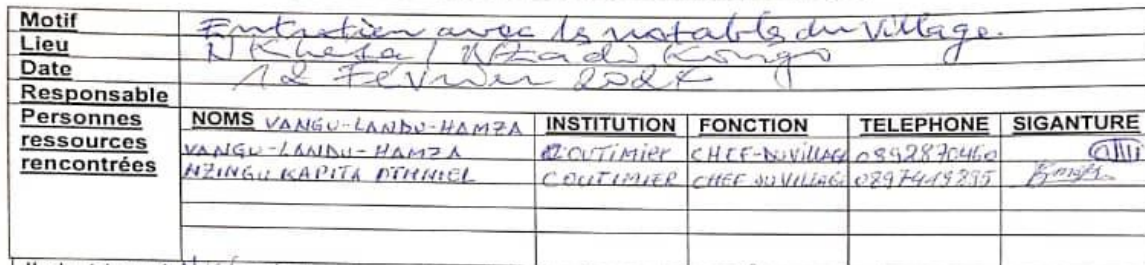 Motif Entretien avec les notables du village.
Lieu NKhesa / NZadi Kongo
Date 12 Février 202
Responsable
Personnes ressources rencontrées
NOMS VANGU-LANDU-HAMZA INSTITUTION FONCTION TELEPHONE SIGANTURE
VANGU-LANDU-HAMZA COUTIMIER CHEF-DUVILLAGE 0892870460
NZINGU KAPITA COUTIMIER CHEF DU VILLAGE 0897419895